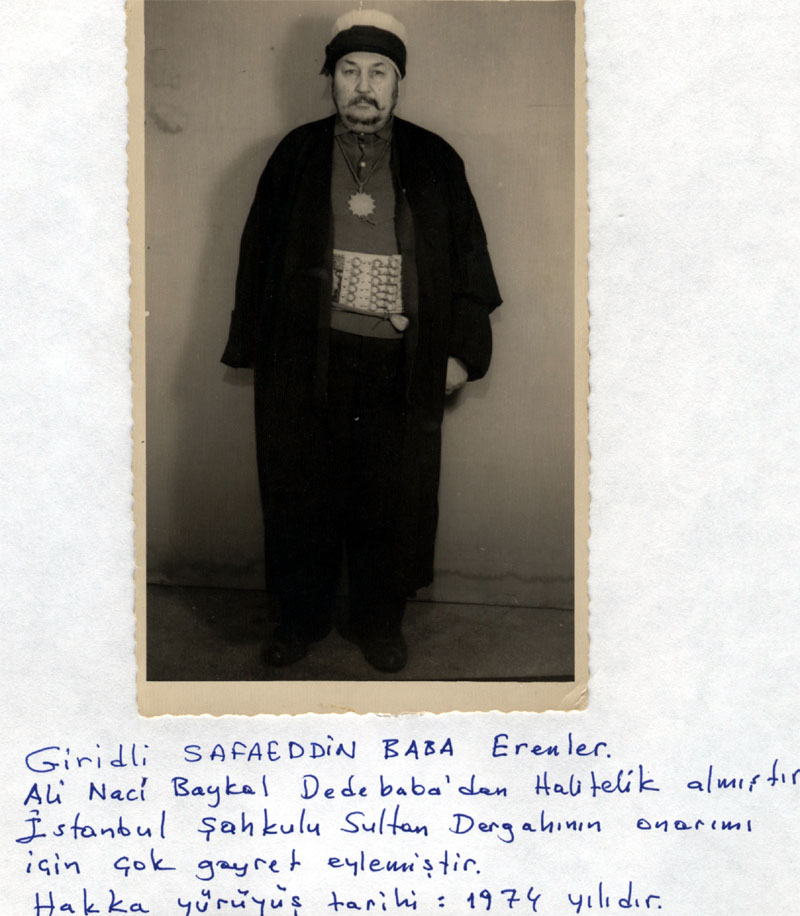 Giridli SAFAEDDİN BABA Erenler.
Ali Naci Baykal Dedebaba'dan Halifelik almıştır
İstanbul Şahkulu Sultan Dergahının onarımı
için çok gayret eylemiştir.
Hakka yürüyüş tarihi : 1974 yılıdır.